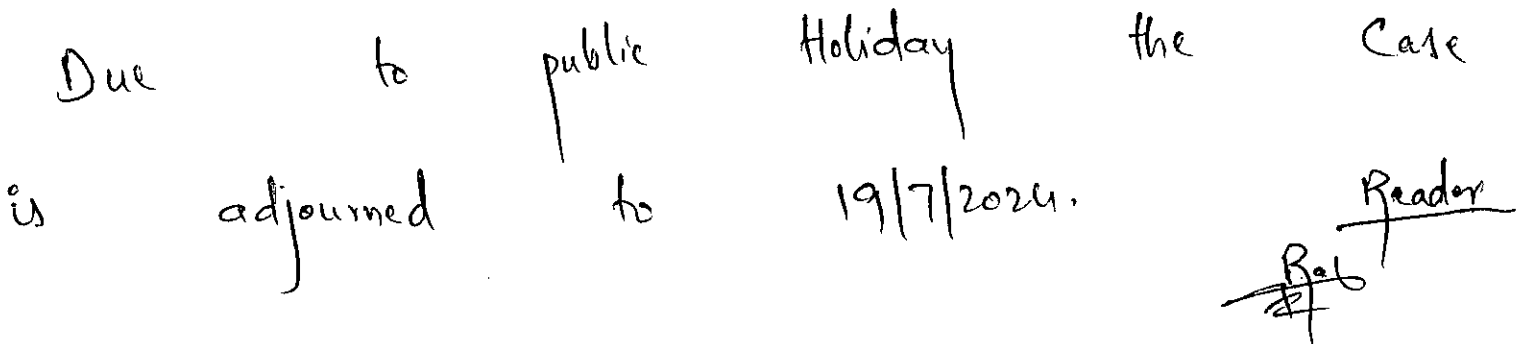 Due to public Holiday the Case
is adjourned to 19/7/2024. Reader